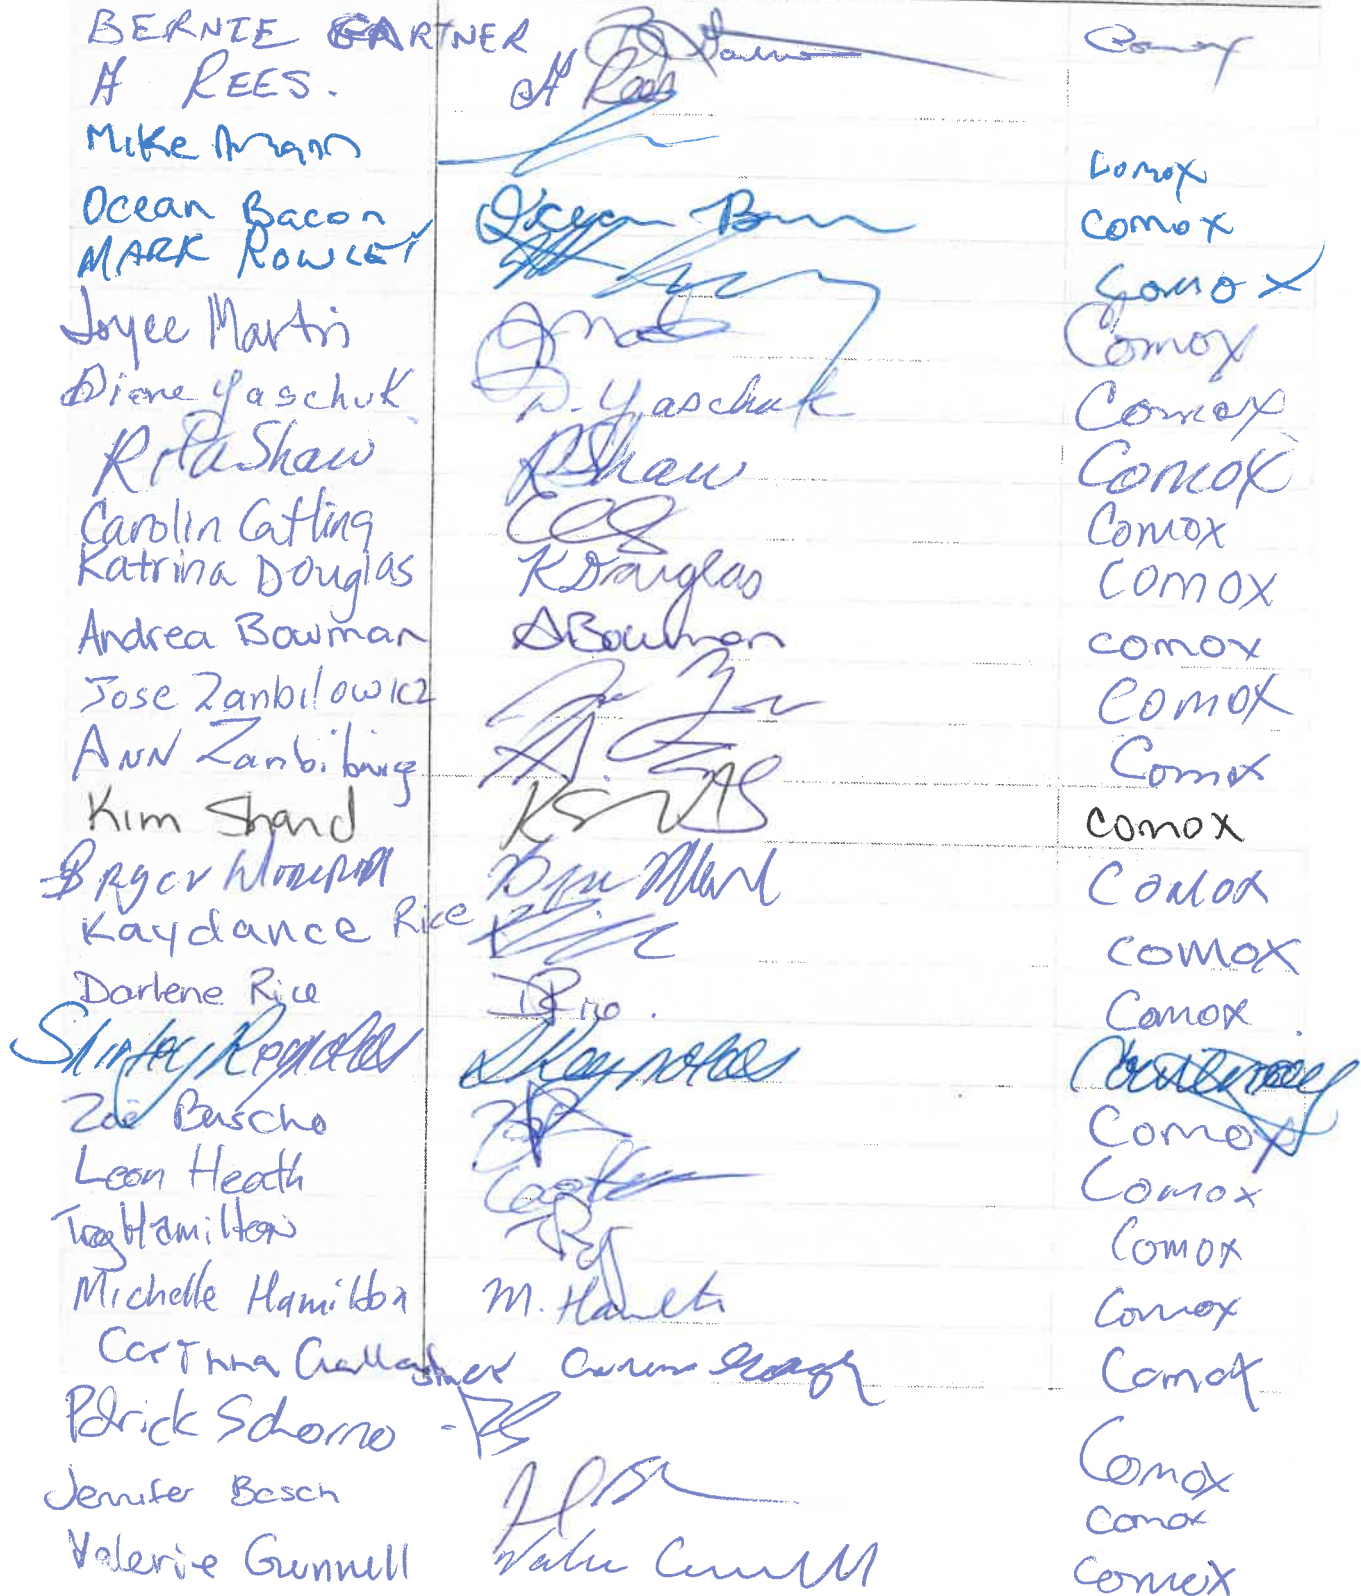 BERNIE GARTNER Comox
A REES. A Rees
Mike Comox
Ocean Bacon Ocean Comox
MARK ROWLEY Comox
Joyce Martin Comox
Diane Yaschuk D. Yaschuk Comox
Rita Shaw R Shaw Comox
Carolin Catling Comox
Katrina Douglas K Douglas Comox
Andrea Bowman A Bowman comox
Jose Zanbilowicz Comox
ANN Comox
Kim Shand comox
Comox
Kaydance Rice comox
Darlene Rice D Rice. Comox
Shirley Reynolds S Reynolds Courtenay
Zoë Buscho Comox
Leon Heath Comox
Hamilton Comox
Michelle Hamilton M. Comox
Corinna Gallagher Comox
Patrick Schorno - PS Comox
Jennifer Bosch Comox
Valerie Gunnell Comox